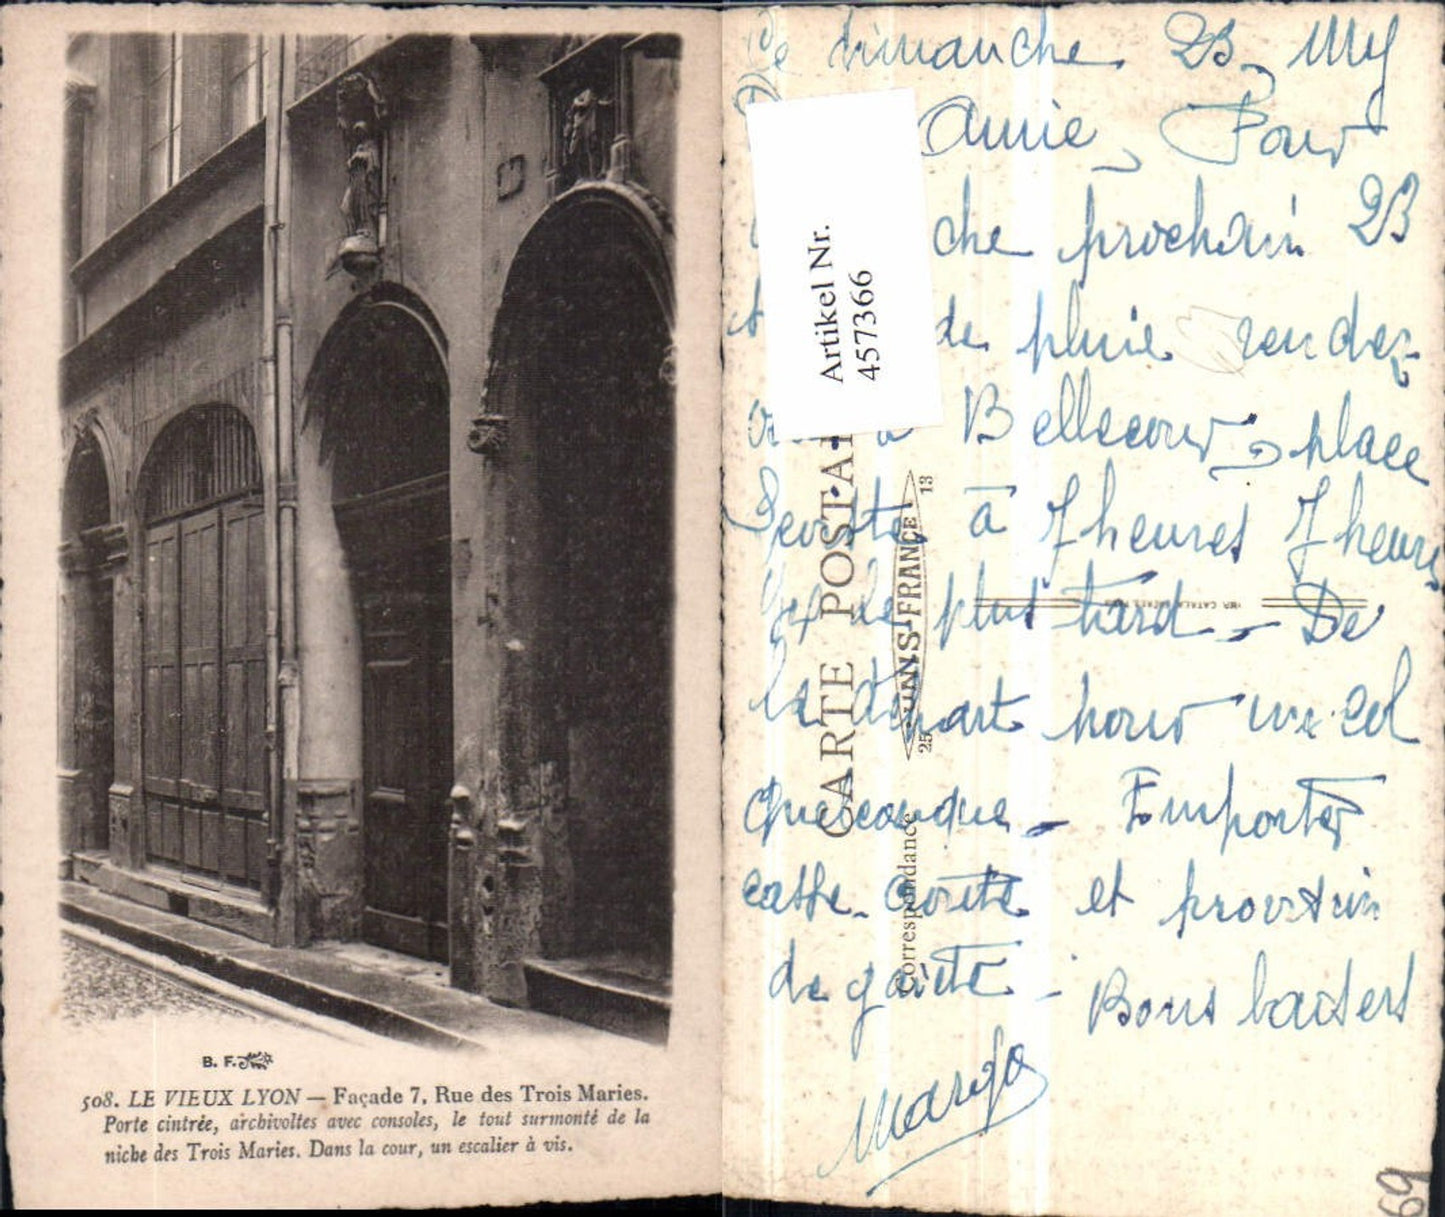 B. F.
508. LE VIEUX LYON — Façade 7, Rue des Trois Maries.
Porte cintrée, archivoltes avec consoles, le tout surmonté de la
niche des Trois Maries. Dans la cour, un escalier à vis.
dimanche 23
Amie, Pour
che prochain 23
de pluie rendez
Bellecour, place
à 7 heures 7 heures
plus tard - De
départ pour un col
quelconque - Emporter
casse-croûte et provision
de gaieté - Bons baisers
Margo
Artikel Nr.
457366
CARTE POSTA
Correspondance
FRANCE
13
25
69